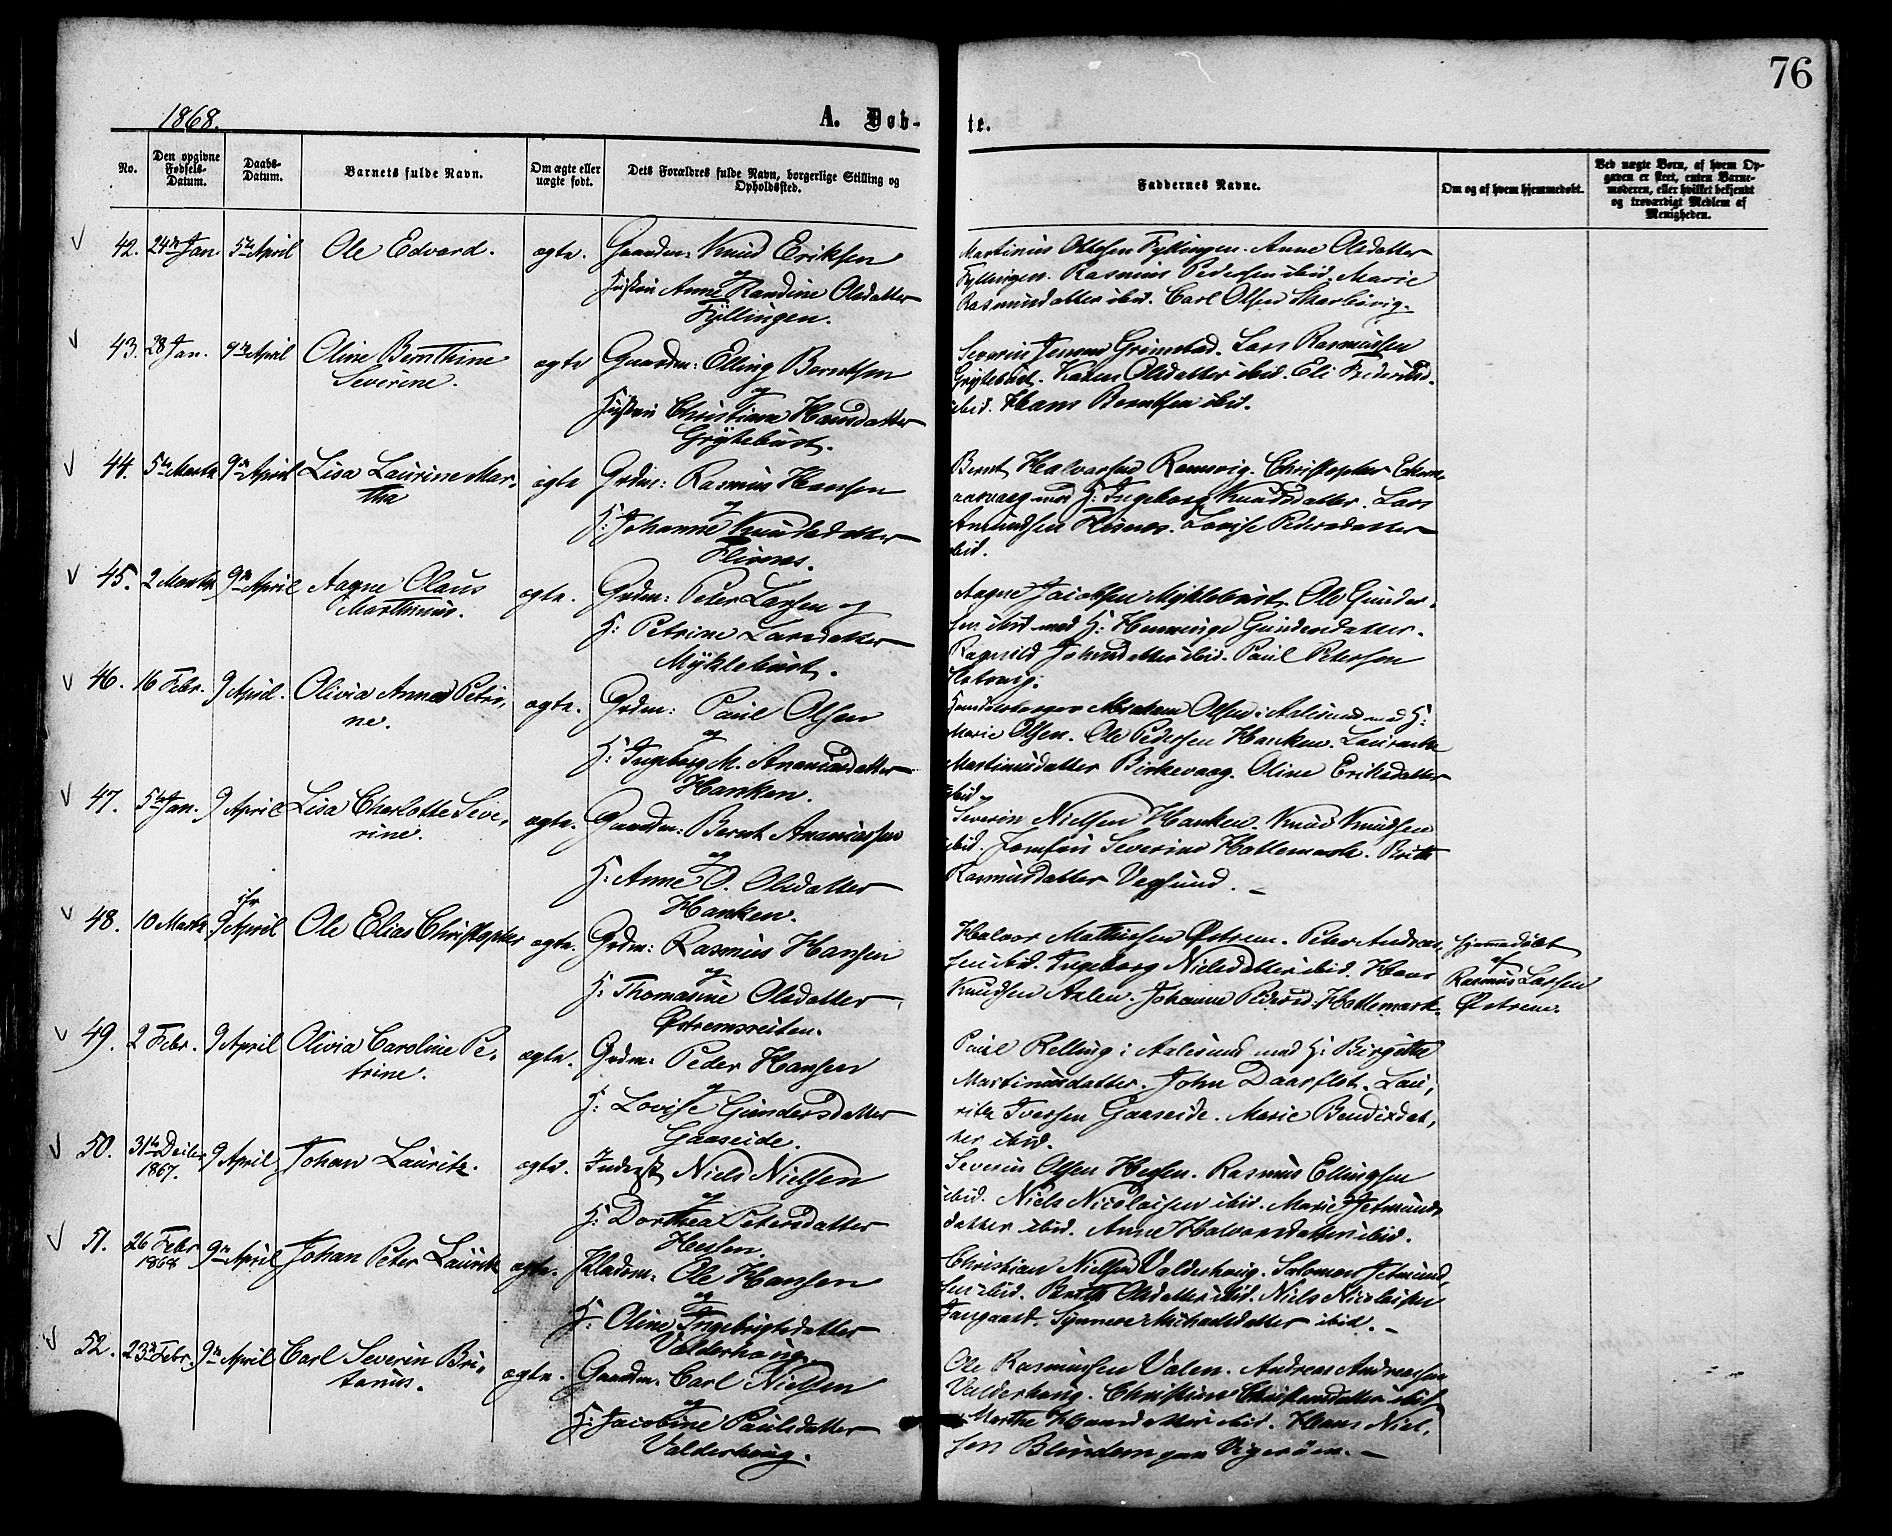 76
1868.
A. Døb-
te.
No.
Den opgivne Fødsels-Datum.
Daabs-Datum.
Barnets fulde Navn.
Om ægte eller uægte født.
Dets Forældres fulde Navn, borgerlige Stilling og Opholdssted.
Faddernes Navne.
Om og af hvem hjemmedøbt.
Ved uægte Børn, af hvem Op-
gaven er skeet, enten Barne-
moderen, eller hvilket bekjendt
og troværdigt Medlem af
Menigheden.
42. 24de Jan. 5te April Ole Edvard. ægte. Gaardm: Knud Eriksen
og
Hustru Anne Randine Olsdatter
Fyllingen.
Martinus Ottesen Fyllingen. Anne Olsdatter
Fyllingen. Rasmus Pedersen ibid. Marie
Rasmusdatter ibid. Carl Olsen
43. 28 Jan. 9de April Oline Bernthine ægte Gaardm: Elling Berntsen
Severine. og
Hustru Christiane Hansdatter
Grytebust.
Severin Jensen Grimstad. Lars Rasmussen
Grytebust. Karen Olsdatter ibid. Eli
ibid. Hans Berntsen ibid.
44. 5te Marts 9de April Lisa Laurine Mar- ægte Grdm: Rasmus Hansen
tha og
H: Johanne Knudsdatter
Flisnes.
Bernt Halvorsen Ramsvig. Christopher
med H: Ingeborg Knudsdatter. Lars
Amundsen Flisnes. Lovise Pedersdatter
ibid.
45. 2 Marts 9de April Aagne Olaus ægte. Grdm: Peter Larsen og
Marthinus. H: Petrine Larsdatter
Myklebust.
Aagne Jacobsen Myklebust. Ole Gunder-
sen ibid med H: Henninge Gundersdatter.
Ragnild Johnsdatter ibid. Paul Petersen
46. 16 Febr. 9 April. Olivia Anne Petri- ægte. Grdm: Paul Olsen
ne. og
H: Ingeborg M. Ananiasdatter
Hanken.
Abraham Olsen i Aalesund med H:
Marie Olsen. Ole Pedersen Hanken.
Martinusdatter Birkevaag. Oline Eriksdatter
ibid.
47. 5te Jan. 9 April Lisa Charlotte Seve- ægte. Gaardm: Bernt Ananiassen
rine. og
H: Anne O. Olsdatter
Hanken.
Severin Nielsen Hanken. Knud Knudsen
ibid. Jomfru Severine Hatlemark. Brith
Rasmusdatter Vegsund.
48. 10 Marts 9 April Ole Elias Christopher ægte. Grdm: Rasmus Hansen
og
H: Thomasine Olsdatter
Østremsreiten.
Halvor Mathiesen Østrem. Peter Andreas-
sen ibid. Ingeborg Nielsdatter ibid. Hans
Knudsen Aalen. Johanne Pedersd: Hatlemark
hjemmedøbt
af
Rasmus Larsen
Østrem.
49. 2 Febr. 9 April Olivia Caroline Pe- ægte. Grdm: Peder Hansen
trine. og
H: Lovise Gundersdatter
Gaaseide.
Paul Relling i Aalesund med H: Birgitte
Martinusdatter. John Daarflot. Lau-
ritz Iversen Gaaseide. Marie Bendixdat-
ter ibid.
50. 31te Decber 9 April Johan Lauritz. ægte. Inderst Niels Nielsen
1867. og
H: Dorthea Petersdatter
Hessen.
Severin Olsen Hessen. Rasmus Ellingsen
ibid. Niels Nicolaisen ibid. Marie Jetmunds-
datter ibid. Anne Halvorsdatter ibid.
51. 26 Febr 9de April Johan Peter Lauritz ægte. Pladsm: Ole Hansen
1868 og
H: Oline Ingebrigtsdatter
Valderhoug
Christian Nielsen Valderhoug. Salomon Jetmund-
sen ibid. Berith Olsdatter ibid. Niels Nicolaisen
Synnøve Michaelsdatter ibid.
52. 23de Febr. 9de April Carl Severin Bri- ægte. Gaardm: Carl Nielsen
tanus. og
H: Jacobine Paulsdatter
Valderhoug.
Ole Rasmussen Valen. Andreas Andreassen
Valderhoug. Christiane Christensdatter ibid
Marthe Hansdatter ibid. Hans Niel-
sen Blindem paa Vigerøen.